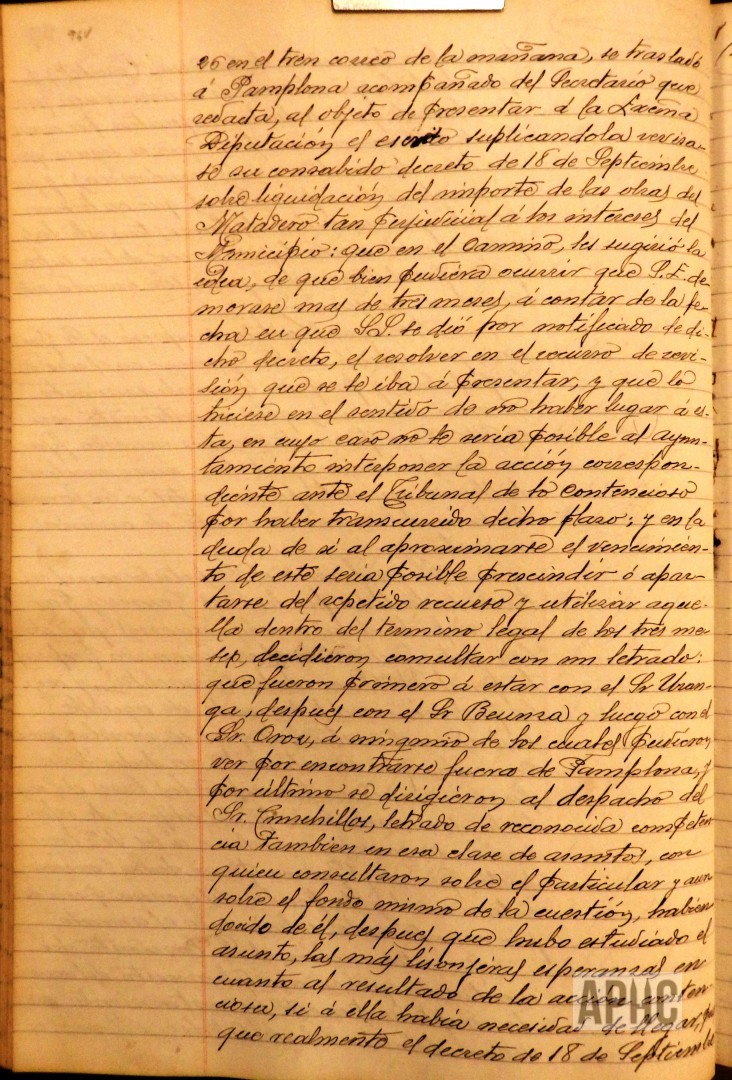 96v
26 en el tren correo de la mañana, se trasladó
á Pamplona acompañado del Secretario que
redacta, al objeto de presentar á la Exema
Diputación el escrito suplicandola revisa-
se su consabido decreto de 18 de Septiembre
sobre liquidación del importe de las obras del
Matadero tan perjudicial á los intereses del
Municipio: que en el camino, les sugirió la
idea, de que bien pudiera ocurrir que S.E. de-
morase mas de tres meses, á contar de la fe-
cha en que S.S. se dió por notificado de di-
cho decreto, el resolver en el recurso de revi-
sión que se le iba á presentar, y que lo
hiciese en el sentido de no haber lugar á es-
ta, en cuyo caso no le seria posible al ayun-
tamiento interponer la acción correspon-
diente ante el Tribunal de lo Contencioso
por haber transcurrido dicho plazo; y en la
duda de si al aproximarse el vencimien-
to de este seria posible prescindir ó apar-
tarse del repetido recurso y utilizar aque-
lla dentro del termino legal de los tres me-
ses, decidieron consultar con un letrado:
que fueron primero á estar con el Sr Uran-
ga, despues con el Sr Beunza y luego con el
Sr. Oroz, á ninguno de los cuales pudieron
ver por encontrarse fuera de Pamplona, y
por último se dirigieron al despacho del
Sr. Cunchillos, letrado de reconocida competen
cia tambien en esa clase de asuntos, con
quien consultaron sobre el particular y aun
sobre el fondo mismo de la cuestión, habien
do oido de él, despues que hubo estudiado el
asunto, las más lisonjeras esperanzas en
cuanto al resultado de la acción conten
ciosa, si á ella habia necesidad de llegar,
que realmente el decreto de 18 de Septiembre
APHC